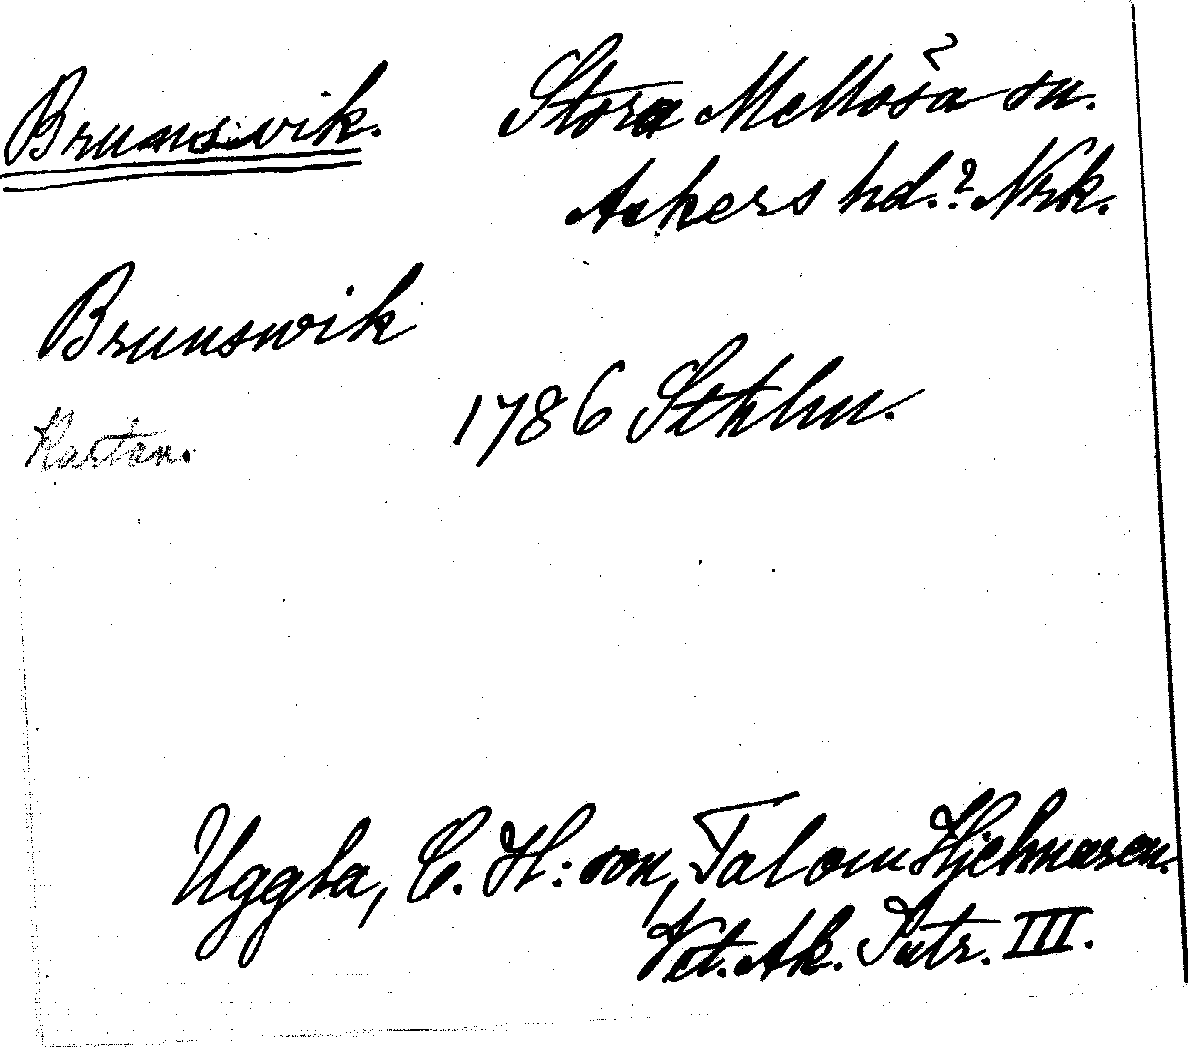 Brunsvik. Stora Mellösa sn.
Askers hd.? Nrk.
Brunswik
1786 Sthlm.
Kartan.
Uggla, C. H:son, Tal om Hjelmaren.
Vet. Ak. Intr. III.